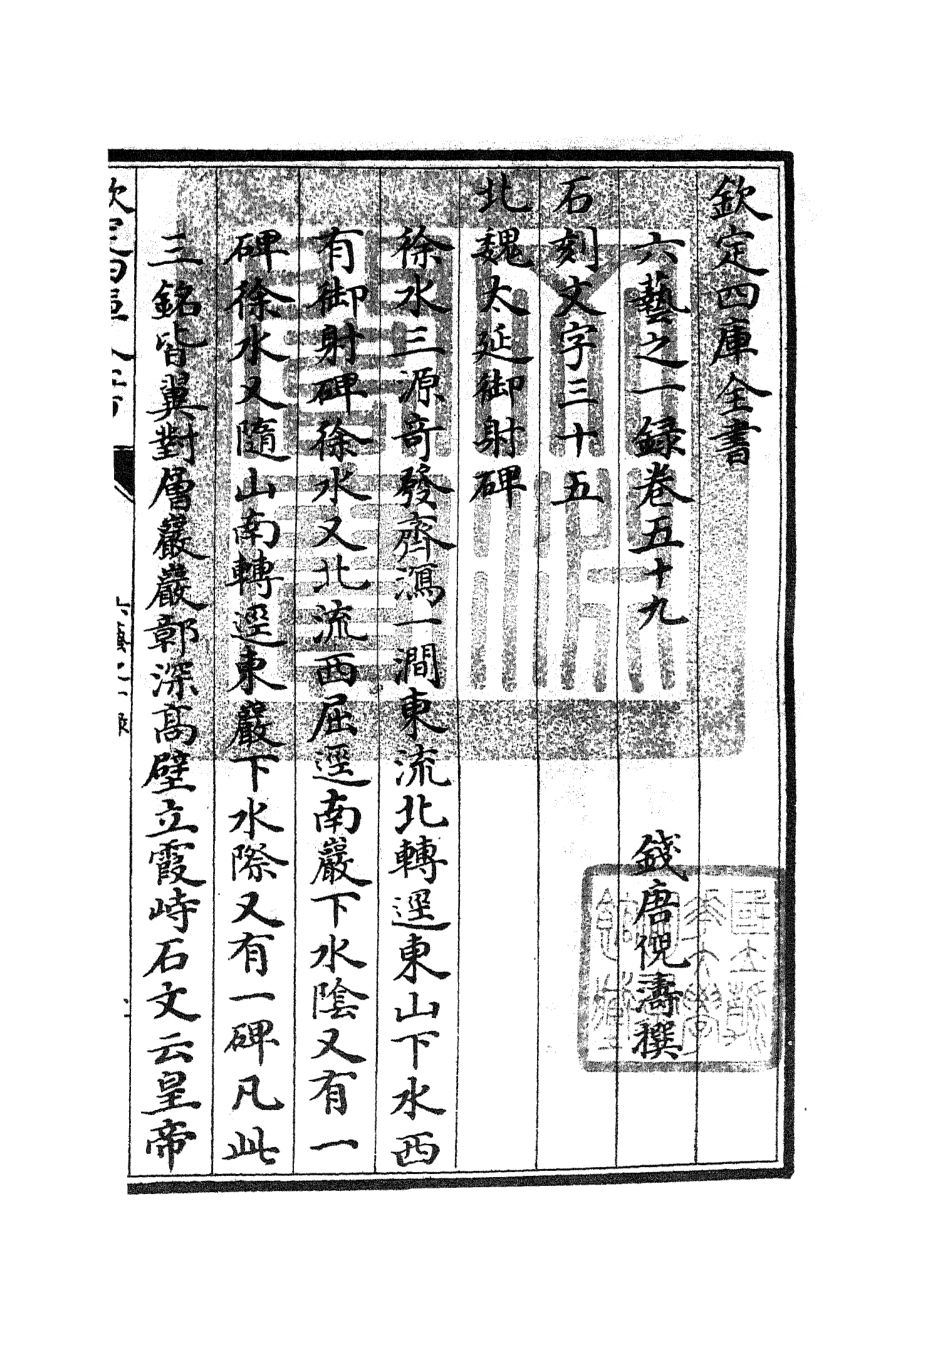 欽定四庫全書
六藝之一録卷五十九
錢唐倪濤撰
石刻文字三十五
北魏太延御射碑
徐水三源竒發齊瀉一澗東流北轉逕東山下水西
有御射碑徐水又北流西屈逕南巖下水隂又有一
碑徐水又隨山南轉逕東巖下水際又有一碑凡此
三銘皆翼對層巖巖鄣深髙壁立霞峙石文云皇帝